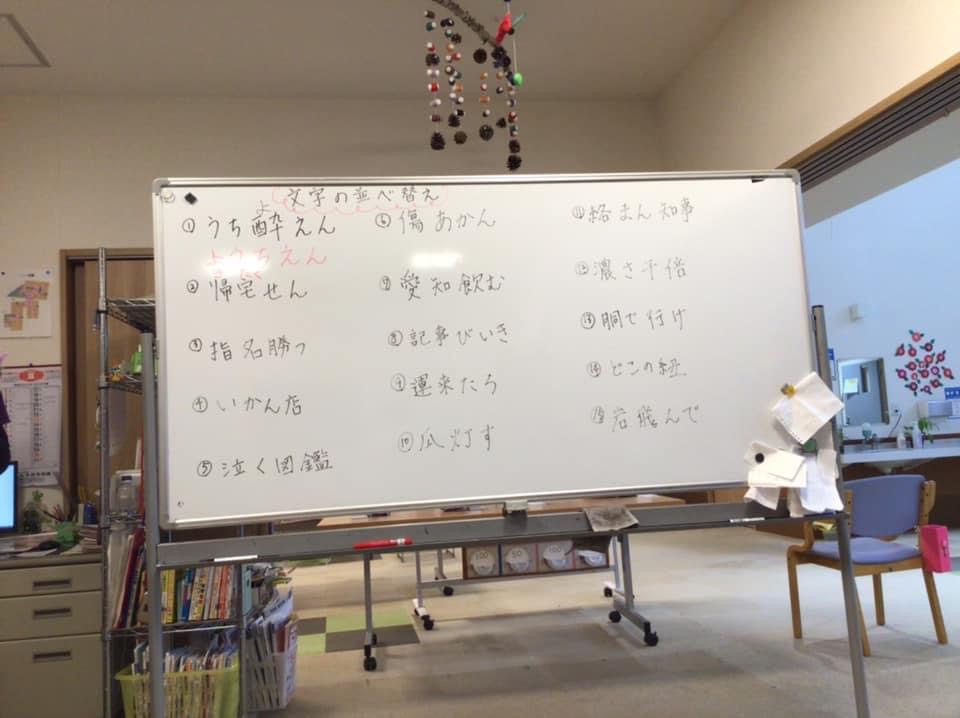 文字の並べ替え
よ
①うち酔えん
ようちえん
②帰宅せん
③指名勝つ
④いかん店
⑤泣く図鑑
⑥傷あかん
⑦愛知飲む
⑧記事びいき
⑨運来たろ
⑩瓜灯す
⑪絡まん知事
⑫濃さ千倍
⑬胴で行け
⑭どこの紐
⑮岩飛んで
100
50
100